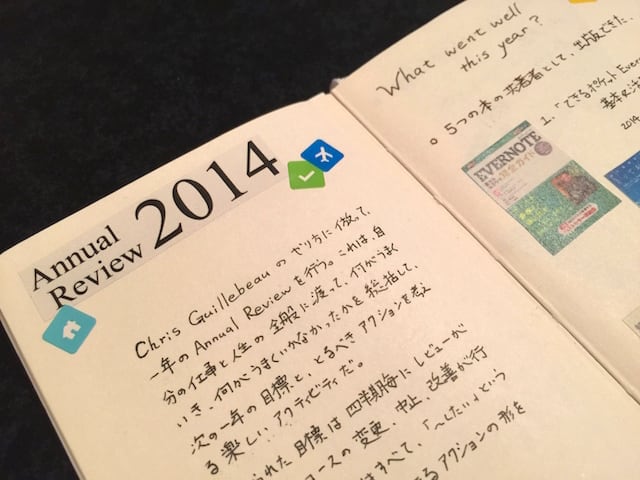 Annual
Review 2014
Chris Guillebeau のやり方に倣って、
一年の Annual Review を行う。これは、自
分の仕事と人生の全般に渡って、何がうまく
いき、何がうまくいかなかったかを総括して、
次の一年の目標と、とるべきアクションを考え
る楽しいアクティビティだ。
られた目標は四半期毎にレビューが
コースの変更、中止、改善が行
はすべて、「〜したい」という
るアクションの形を
What went well
this year?
5つの本の共著者として、出版できた。
1. 「できるポケット Ever
基本&活
2014
EVERNOTE
ガイド